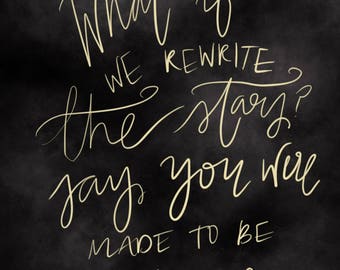 What if
WE REWRITE
the stars?
say you were
MADE TO BE